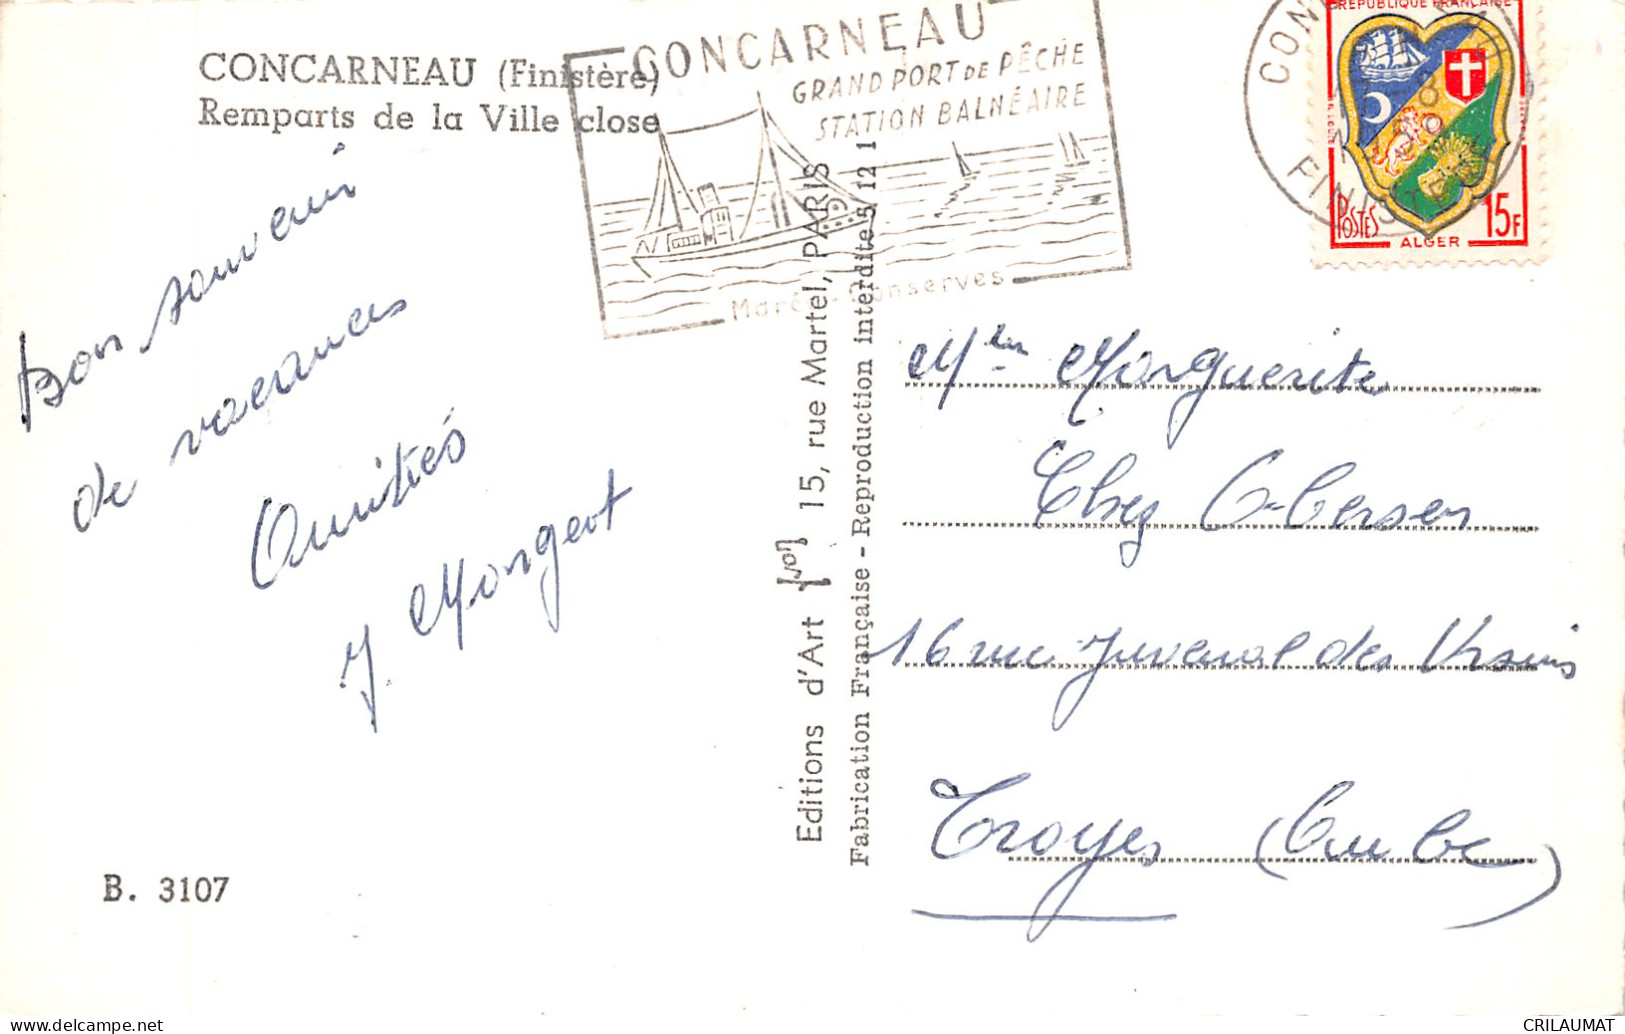 CONCARNEAU (Finistère)
Remparts de la Ville close
CONCARNEAU
GRAND PORT DE PÊCHE
STATION BALNÉAIRE
Marée - Conserves
RÉPUBLIQUE FRANÇAISE
POSTES
15F
ALGER
CON
FINISTERE
Bon souvenir
de vacances
Amitiés
Y Mongeot
Editions d'Art Yvon 15, rue Martel, PARIS
Fabrication Française - Reproduction interdite 5 12 1
Marguerite
Chez
16 rue Juvenal des Ursins
Troyes (Aube)
B. 3107
CRILAUMAT